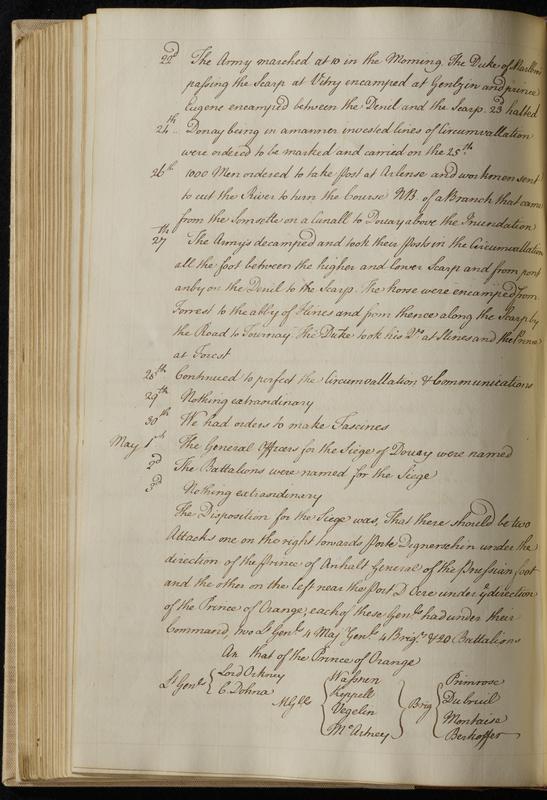 22d The Army marched at 10 in the Morning. The Duke of Marlbro
passing the Scarp at Vitry encamped at Gentzin and prince
Eugene encamped between the Denil and the Scarp. 23 halted
24th Douay being in a manner invested lines of Circumvallation
were ordered to be marked and carried on the 25th
26th 1000 Men ordered to take post at Arlense and workmen sent
to cut the River to turn the Course NB. of a Branch that came
from the Somsette or a Canall to Douay above the Inundation
27th The Armys decamped and took their Posts in the Circumvallation
all the foot between the higher and lower Scarp and from pont
anby on the Denil to the Scarp. The horse were encamped from
Forrest to the abby of Flines and from thence along the Scarp by
the Road to Tournay The Duke took his Qrs at Flines and the Prince
at Forest
28th Continued to perfect the Circumvallation & Communications
29th Nothing extraordinary
30th We had orders to make Fascines
May 1st The General Officers for the Siege of Douay were named
2d The Battalions were named for the Siege
3d Nothing extraordinary
The Disposition for the Siege was, That there should be two
Attacks one on the right towards Porte Dignerschin under the
direction of the Prince of Anhalt General of the Prussian foot
and the other on the left near the Port D Ocre under ye direction
of the Prince of Orange; each of these Genls had under their
Command, two Lt Genls 4 Maj Genls 4 Brigrs & 20 Battalions
An that of the Prince of Orange
Lt Genls { Lord Orkney C. Dohna
MGlls { Wassnen Keppell Vegelin McArtney } Brig { Primrose Dubruil Montaise Berkoffer